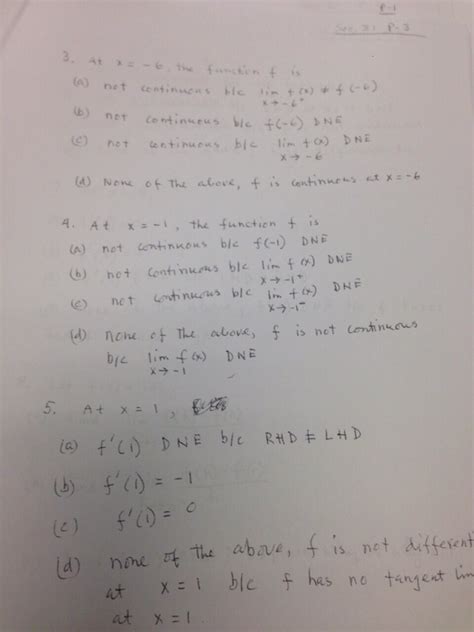 P-1
Sec. P-3
3. At x = -6, the function f is
(a) not continuous b/c lim f(x) ≠ f(-6)
x→-6⁺
(b) not continuous b/c f(-6) DNE
(c) not continuous b/c lim f(x) DNE
x→-6
(d) None of The above, f is continuous at x=-6
4. At x = -1, the function f is
(a) not continuous b/c f(-1) DNE
(b) not continuous b/c lim f(x) DNE
x→-1⁺
(c) not continuous b/c lim f(x) DNE
x→-1⁻
(d) none of The above, f is not continuous
b/c lim f(x) DNE
x→-1
5. At x = 1,
(a) f'(1) DNE b/c RHD ≠ LHD
(b) f'(1) = -1
(c) f'(1) = 0
(d) none of The above, f is not different
at x = 1 b/c f has no tangent lin
at x = 1.